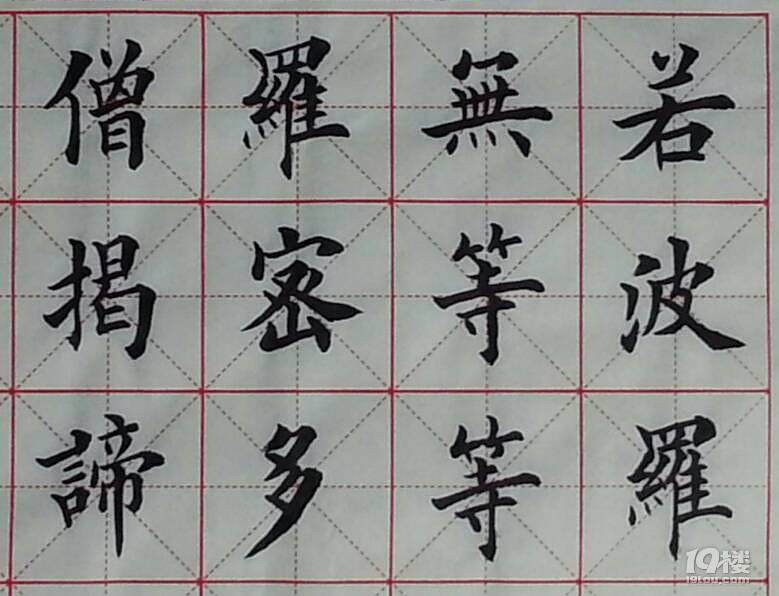 若波羅
無等等
羅密多
僧揭諦
19楼
19lou.com